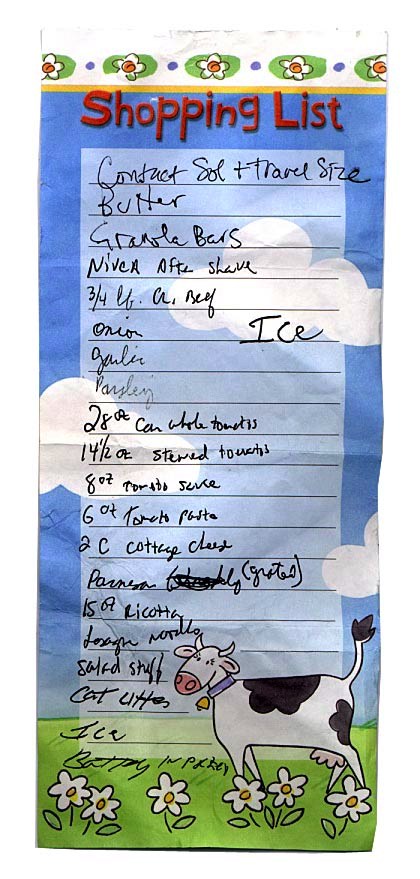 Shopping List
Contact Sol + Travel Size
Butter
Granola Bars
Nivea After Shave
3/4 lb. Gr. Beef
onion Ice
garlic
Parsley
28 oz can whole tomatos
14 1/2 oz stewed tomatos
8 oz tomato sauce
6 oz Tomato Paste
2 C cottage cheese
Parmesan (grated)
15 oz Ricotta
Lasagn noodles
salad stuff
Cat Litter
Ice
Battery in